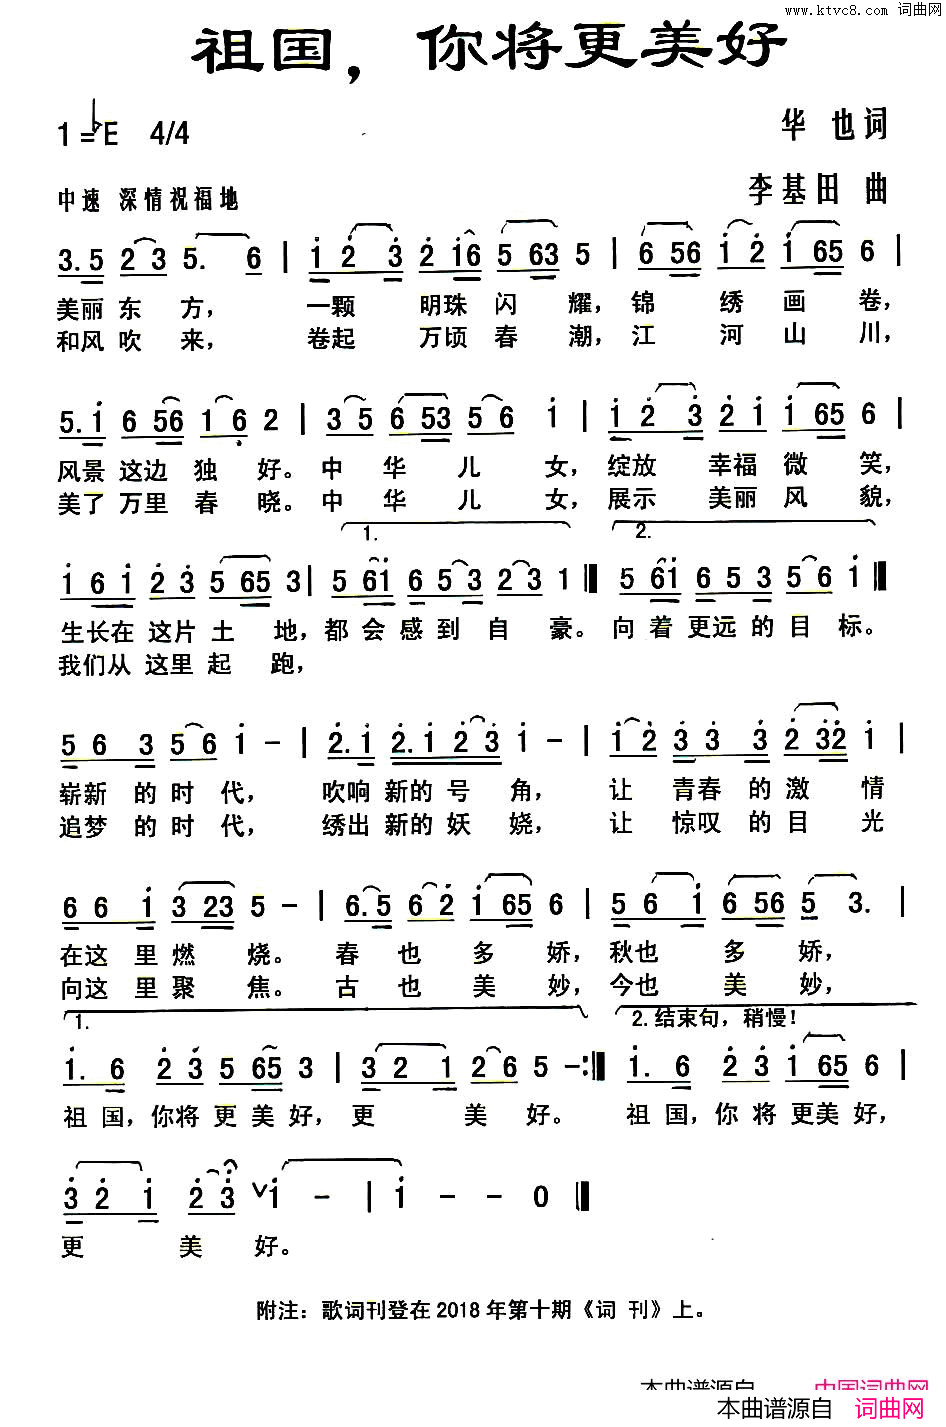 www.ktvc8.com 词曲网
祖国，你将更美好
1=♭E 4/4
华 也词
中速 深情祝福地
李基田 曲
3.5 2 3 5. 6 | 1 2 3 2 16 5 63 5 | 6 56 1 2 1 65 6 |
美丽 东 方， 一颗 明珠 闪 耀， 锦 绣 画 卷，
和风 吹 来， 卷起 万顷 春 潮， 江 河 山 川，
5.1 6 56 1 6 2 | 3 5 6 53 5 6 1 | 1 2 3 2 1 1 65 6 |
风景 这边 独 好。 中 华 儿 女， 绽放 幸福 微 笑，
美了 万里 春 晓。 中 华 儿 女， 展示 美丽 风 貌，
1. 2.
1 6 1 2 3 5 65 3 | 5 61 6 5 3 2 3 1 ‖ 5 61 6 5 3 5 6 1 ‖
生长在 这片 土 地， 都 会 感 到 自 豪。 向 着 更远 的 目 标。
我们从 这里 起 跑，
5 6 3 5 6 1 – | 2.1 2.1 2 3 1 – | 1 2 3 3 3 2 32 1 |
崭新 的 时 代， 吹响 新的 号 角， 让 青春 的 激 情
追梦 的 时 代， 绣出 新的 妖 娆， 让 惊叹 的 目 光
6 6 1 3 23 5 – | 6.5 6 2 1 65 6 | 5 6 1 6 56 5 3. |
在这 里 燃 烧。 春 也 多 娇， 秋也 多 娇，
向这 里 聚 焦。 古 也 美 妙， 今也 美 妙，
1. 2.结束句，稍慢！
1. 6 2 3 5 65 3 | 3 2 1 2 6 5 – :‖ 1. 6 2 3 1 65 6 |
祖 国，你将 更 美 好， 更 美 好。 祖 国，你 将 更美 好，
3 2 1 2 3 ∨1 – | 1 – – 0 ‖
更 美 好。
附注：歌词刊登在2018年第十期《词 刊》上。
本曲谱源自 中国词曲网
本曲谱源自 词曲网